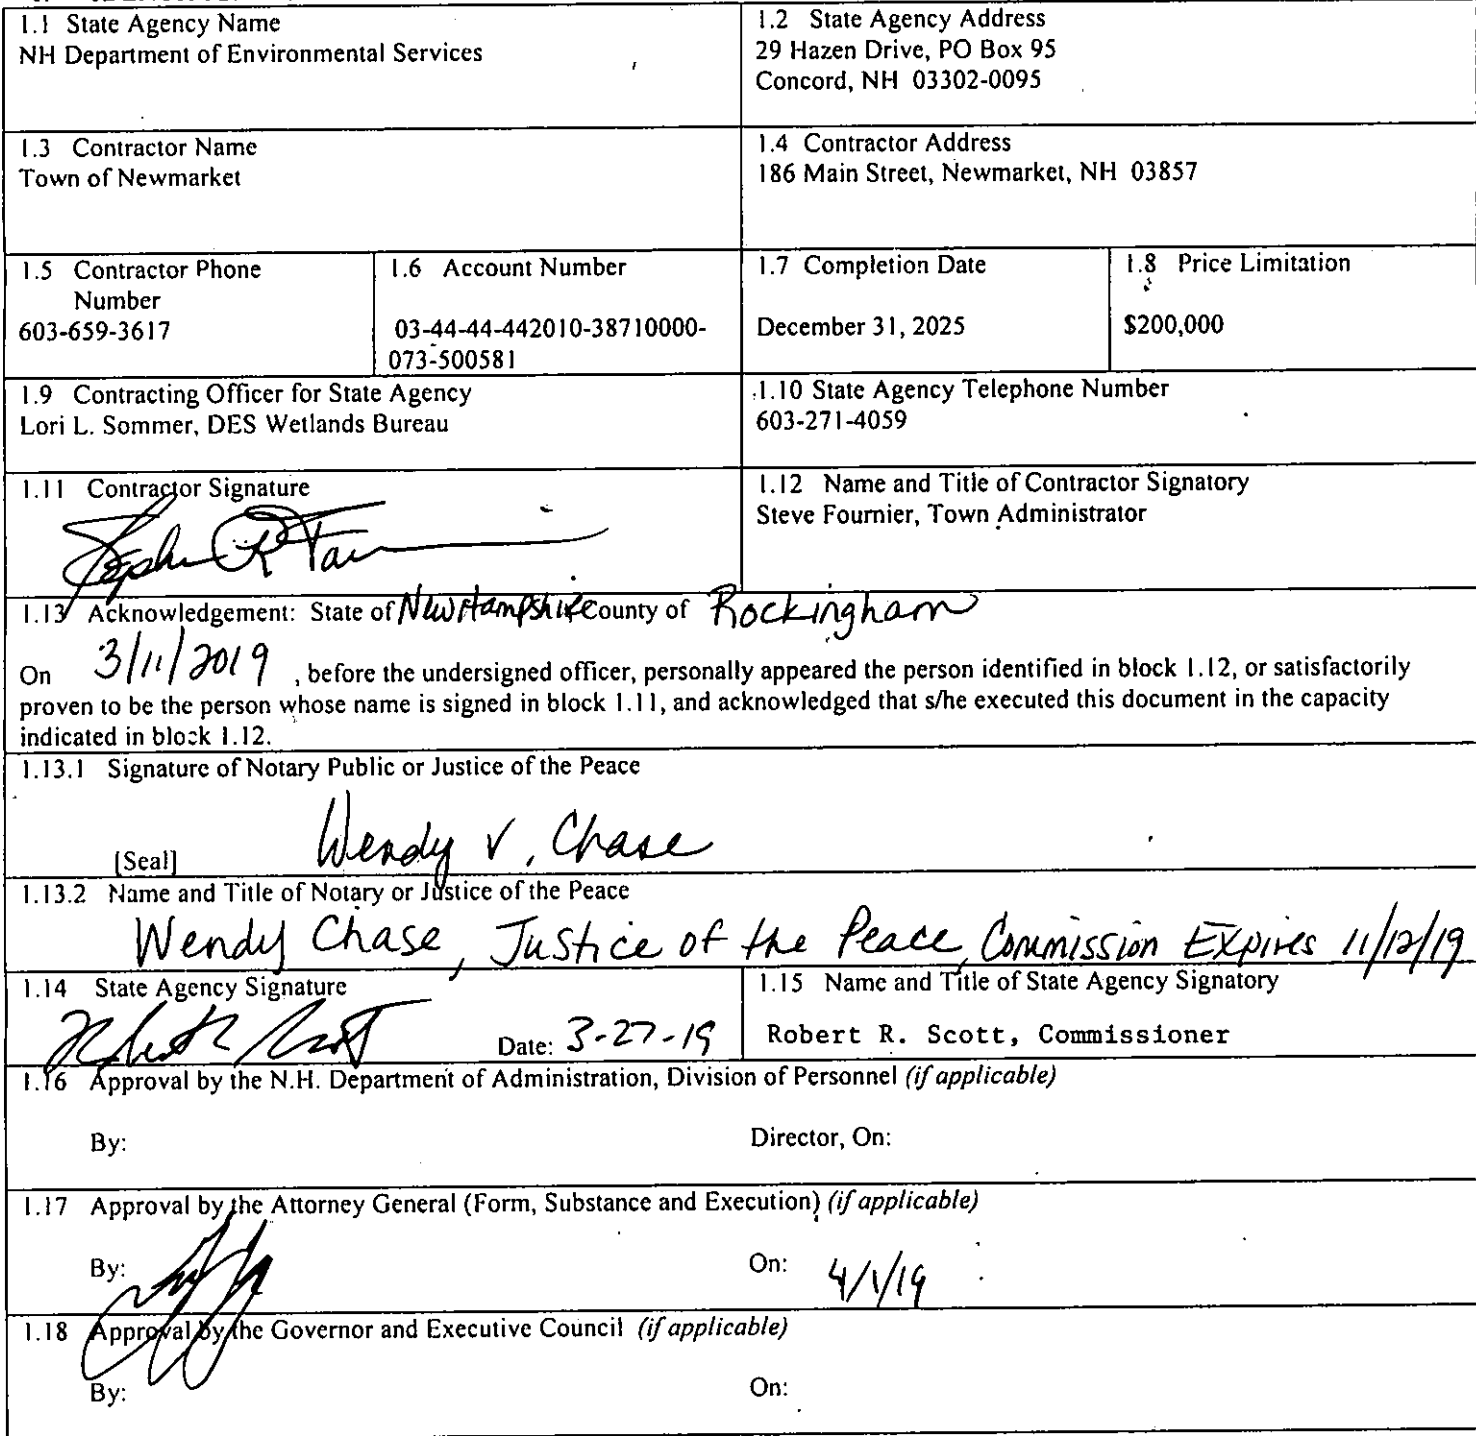 1.1 State Agency Name
NH Department of Environmental Services
1.2 State Agency Address
29 Hazen Drive, PO Box 95
Concord, NH 03302-0095
1.3 Contractor Name
Town of Newmarket
1.4 Contractor Address
186 Main Street, Newmarket, NH 03857
1.5 Contractor Phone
Number
603-659-3617
1.6 Account Number
03-44-44-442010-38710000-
073-500581
1.7 Completion Date
December 31, 2025
1.8 Price Limitation
$200,000
1.9 Contracting Officer for State Agency
Lori L. Sommer, DES Wetlands Bureau
1.10 State Agency Telephone Number
603-271-4059
1.11 Contractor Signature
1.12 Name and Title of Contractor Signatory
Steve Fournier, Town Administrator
1.13 Acknowledgement: State of New Hampshire County of Rockingham
On 3/11/2019, before the undersigned officer, personally appeared the person identified in block 1.12, or satisfactorily
proven to be the person whose name is signed in block 1.11, and acknowledged that s/he executed this document in the capacity
indicated in block 1.12.
1.13.1 Signature of Notary Public or Justice of the Peace
[Seal] Wendy V. Chase
1.13.2 Name and Title of Notary or Justice of the Peace
Wendy Chase, Justice of the Peace, Commission Expires 11/12/19
1.14 State Agency Signature
Date: 3-27-19
1.15 Name and Title of State Agency Signatory
Robert R. Scott, Commissioner
1.16 Approval by the N.H. Department of Administration, Division of Personnel (if applicable)
By: Director, On:
1.17 Approval by the Attorney General (Form, Substance and Execution) (if applicable)
By: On: 4/1/19
1.18 Approval by the Governor and Executive Council (if applicable)
By: On: